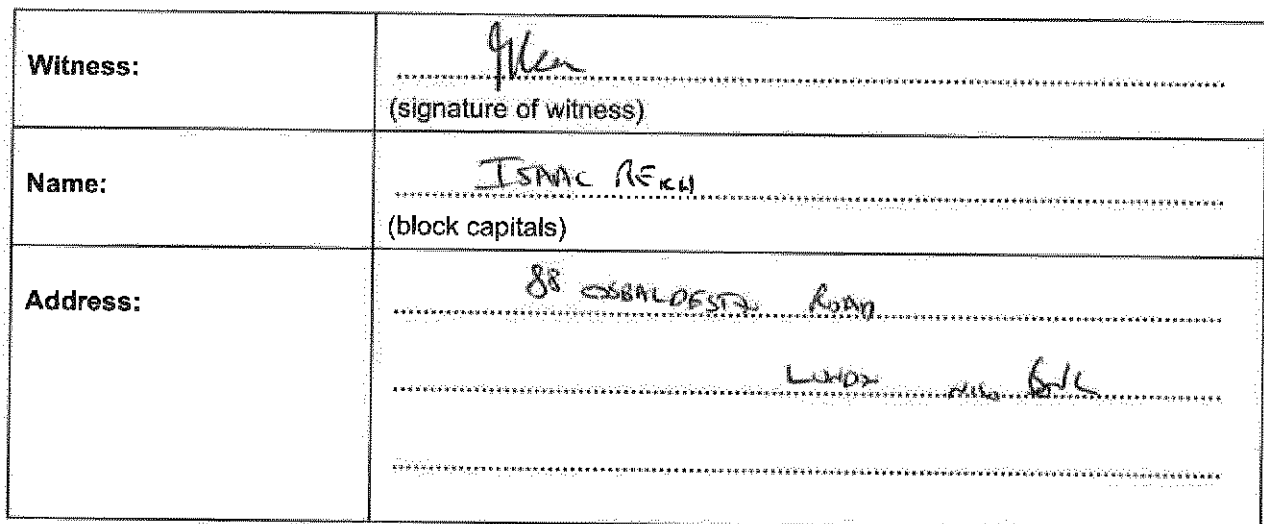 Witness:
(signature of witness)
Name: ISAAC REICH
(block capitals)
Address: 88 OSBALDESTON ROAD
LONDON N16